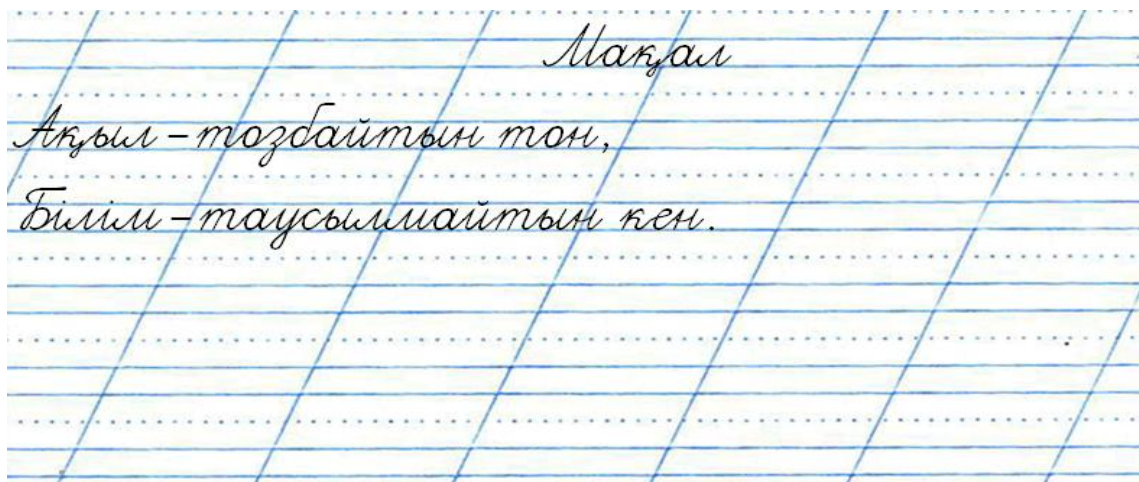 Мақал
Ақыл – тозбайтын тон,
Білім – таусылмайтын кен.